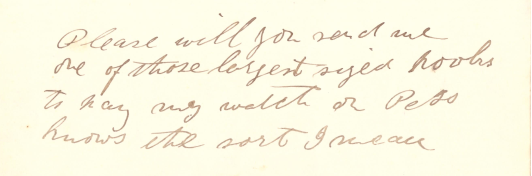 Please will you send me
one of those largest sized hooks
to hang my watch on Pebo
knows the sort I mean